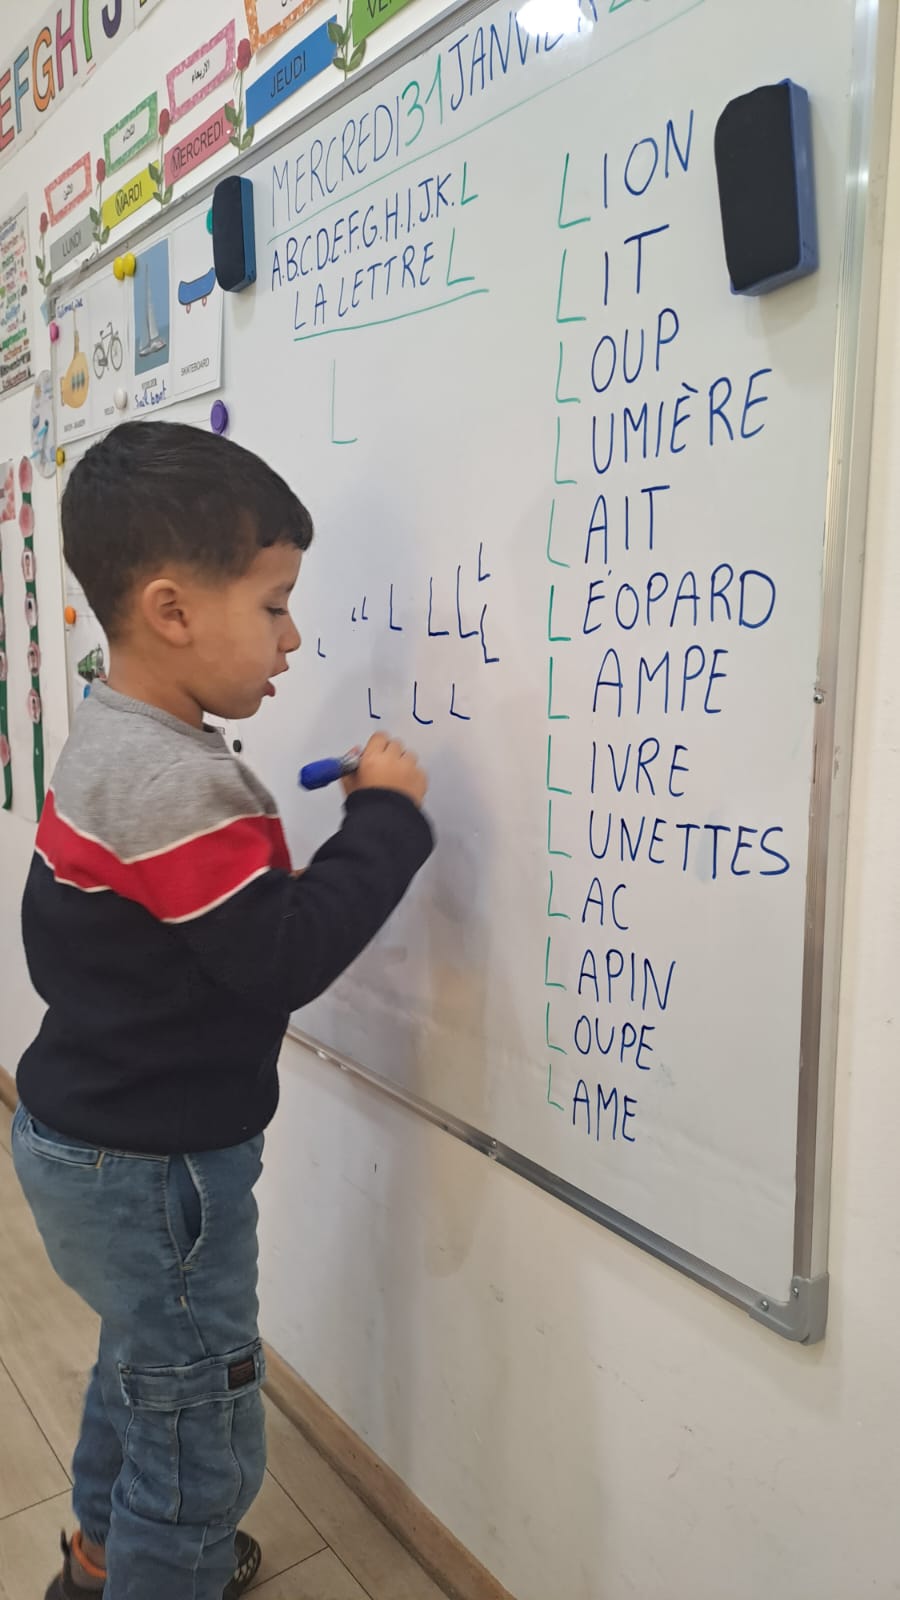 EFGHIJ
VEN
JEUDI
الأربعاء
MERCREDI
الثلاثاء
MARDI
LUNDI
MERCREDI 31 JANVIER
A.B.C.D.E.F.G.H.I.J.K.L
LA LETTRE L
SKATEBOARD
VOILIER
Sail boat
VELO
L
L L L L L L L
L
L L L
LION
LIT
LOUP
LUMIÈRE
LAIT
LÉOPARD
LAMPE
LIVRE
LUNETTES
LAC
LAPIN
LOUPE
LAME